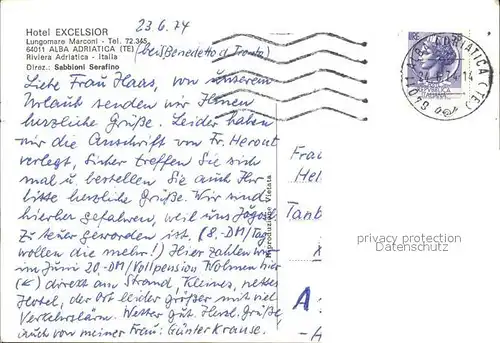 Hotel EXCELSIOR
Lungomare Marconi - Tel. 72.345
64011 ALBA ADRIATICA (TE)
Riviera Adriatica - Italia
Direz.: Sabbioni Serafino
23.6.74
(bei Benedetto d. Tronto)
Liebe Frau Haas, von unserem
Urlaub senden wir Ihnen
herzliche Grüße. Leider haben
wir die Anschrift von Fr. Herout
verlegt, sicher treffen Sie sich
mal u. bestellen Sie auch Ihr
bitte herzliche Grüße. Wir sind
hierher gefahren, weil uns Jugosl.
zu teuer geworden ist. (8.-DM/Tag
wollen die mehr!) Hier zahlen wir
im Juni 20.-DM/Vollpension Wohnen hier
(←) direkt am Strand, kleines, nettes
Hotel, der Ort leider größer mit viel
Verkehrslärm. Wetter gut. Herzl. Grüße
auch von meiner Frau: Günter Krause.
Riproduzione Vietata
64011 ALBA ADRIATICA (TE)
24.6.74 14
REPVBBLICA
ITALIANA
Frau
Hel
Tanb
A:
-H
privacy protection
Datenschutz